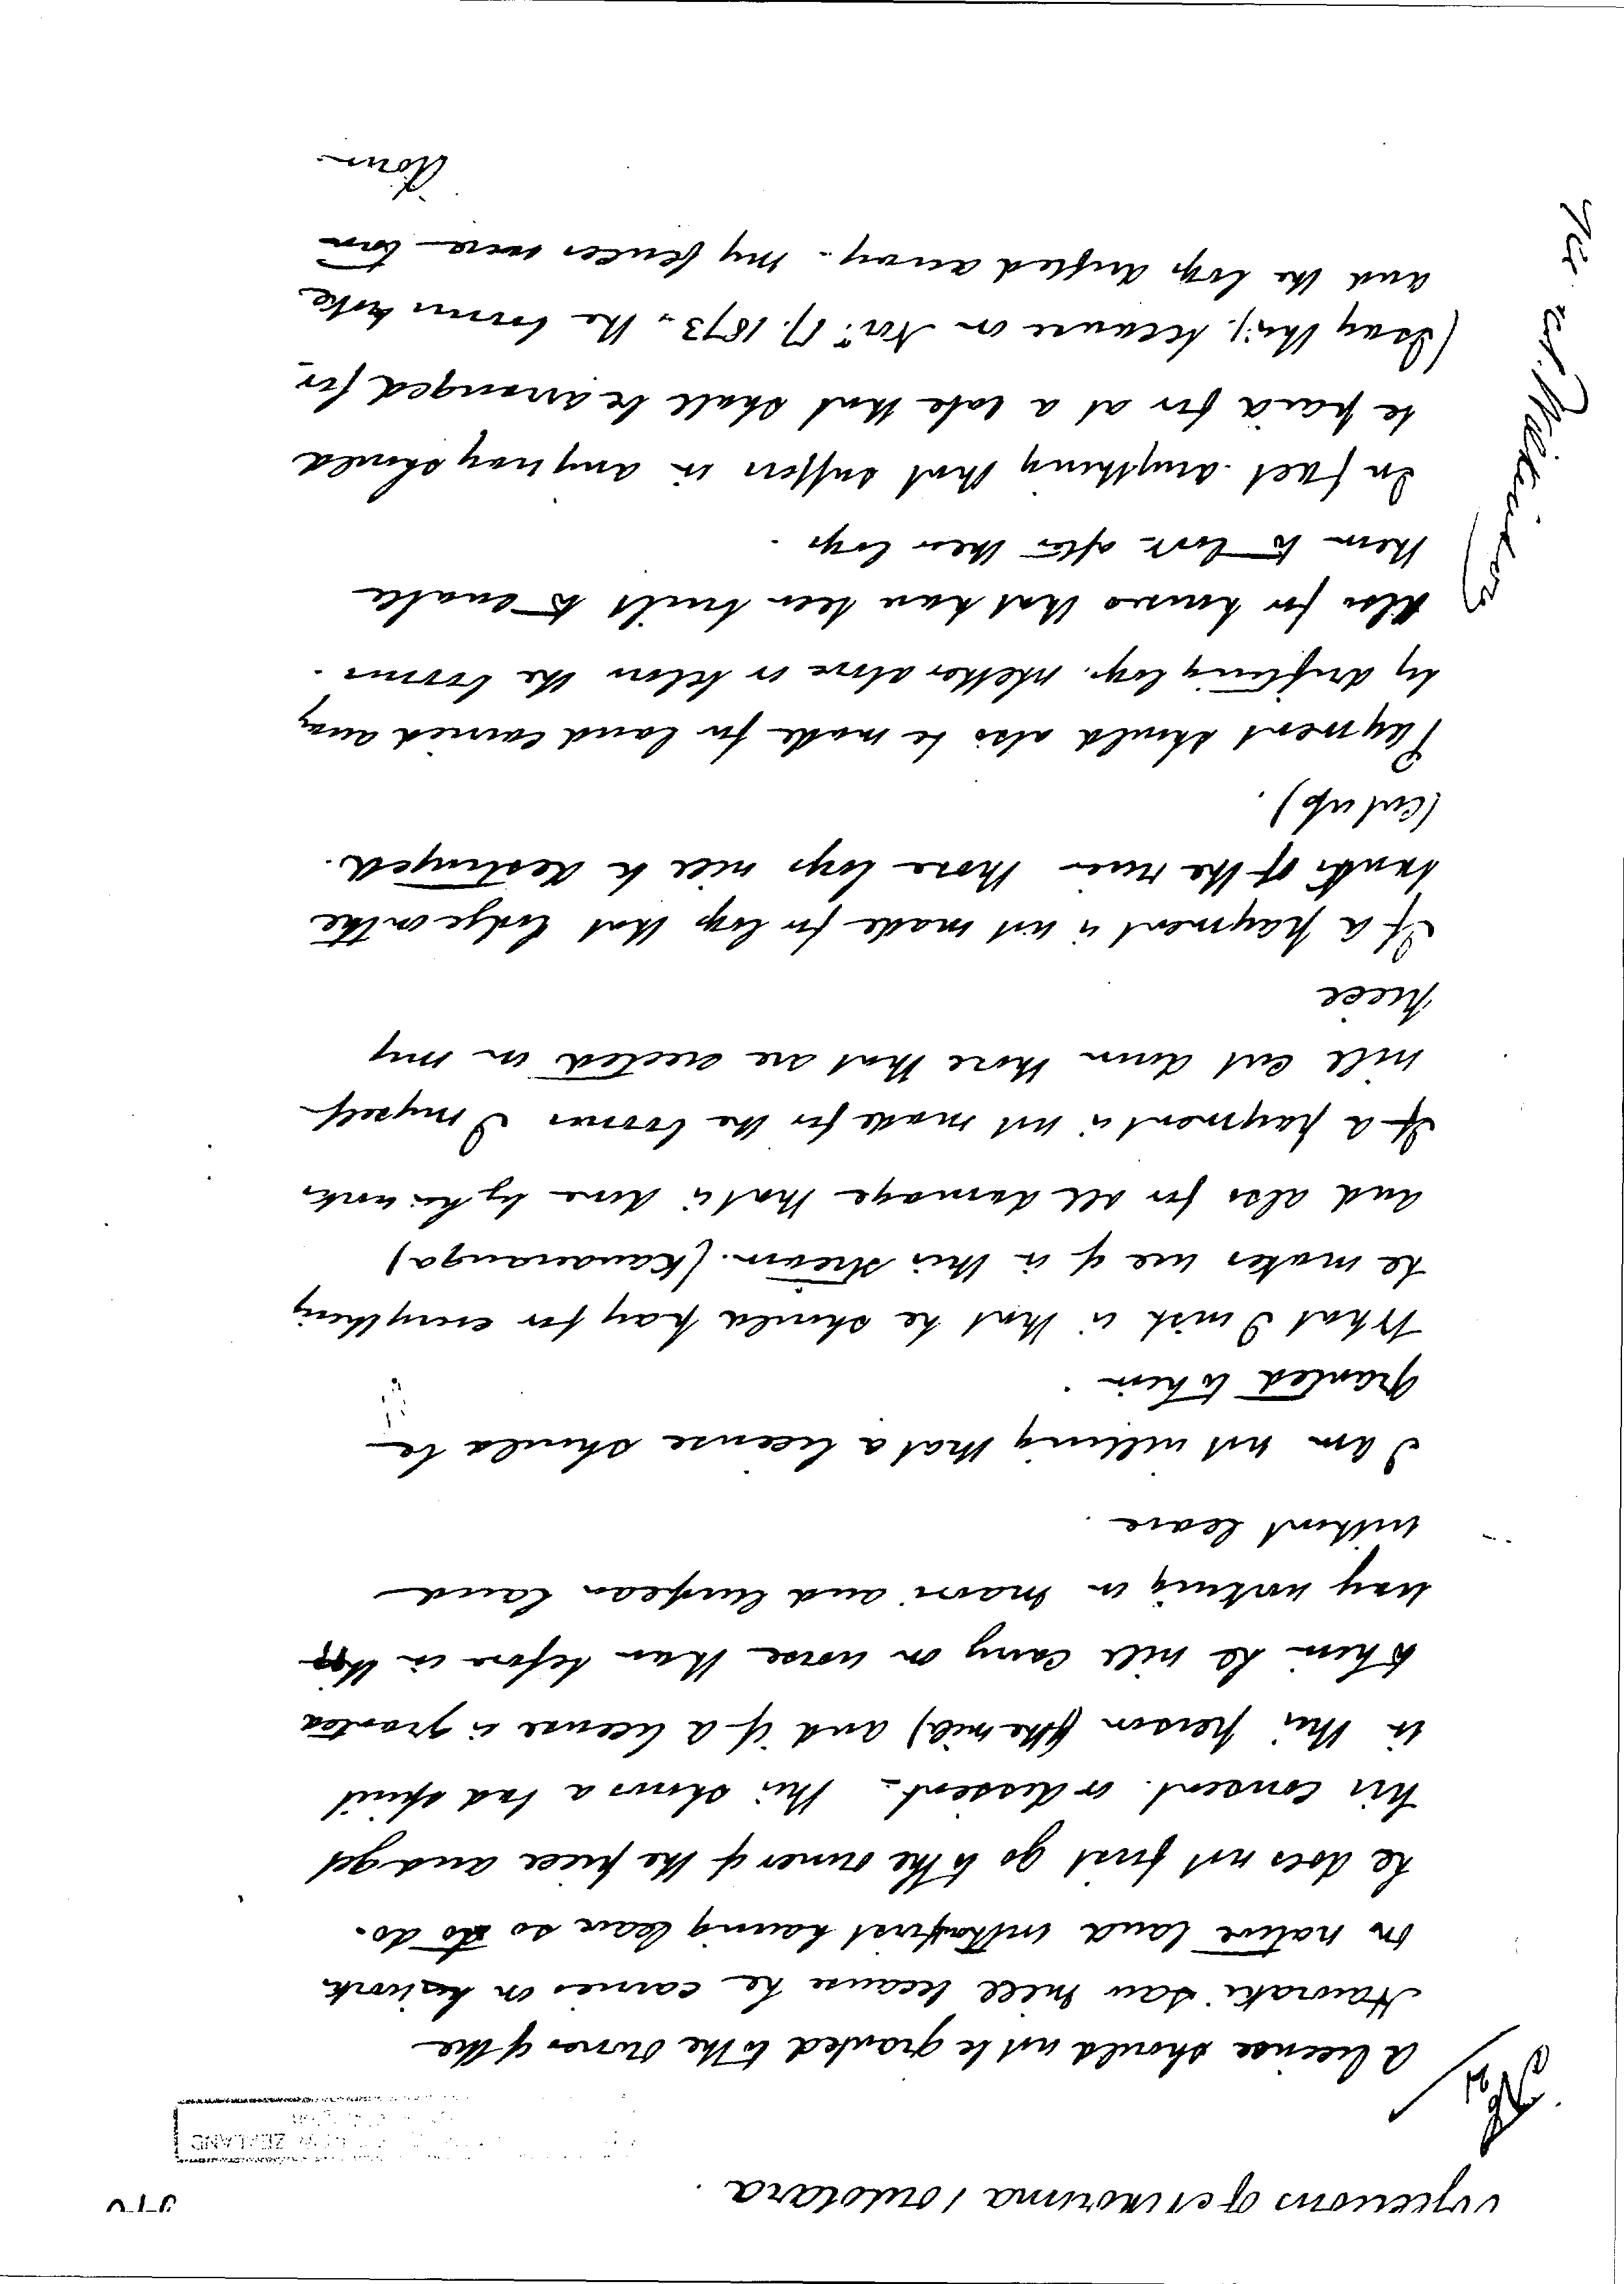 Objections of Aihorima Toutotara.
A license should not be granted to the owner of the
Hauraki Saw Mill because he carries on his work
on native land without first having leave so to do.
he does not first go to the owner of the piece and get
his consent. or dissent - This shows a bad spirit
in this person (the mill) and if a license is granted
to him he will carry on worse than before in the
way working on maori and European land
without leave.
I am not willing that a license should be
granted to him.
What I wish is that he should pay for everything
he makes use of in this stream. (Kauaeranga)
and also for all damage that is done by his work.
If a payment is not made for the booms I myself
will cut down those that are erected on my
piece
If a payment is not made for logs that lodge on the
banks of the river those logs will be destroyed.
(cut up).
Payment should also be made for land carried away
by drifting logs. whether above or below the booms.
Also for houses that have been built to enable
them to look after their logs.
In fact anything that suffers in any way should
be paid for at a rate that shall be arranged for
(I say this), because on Novr 17. 1873. the booms broke
and the logs drifted away. my fences were torn
down.
ZEALAND